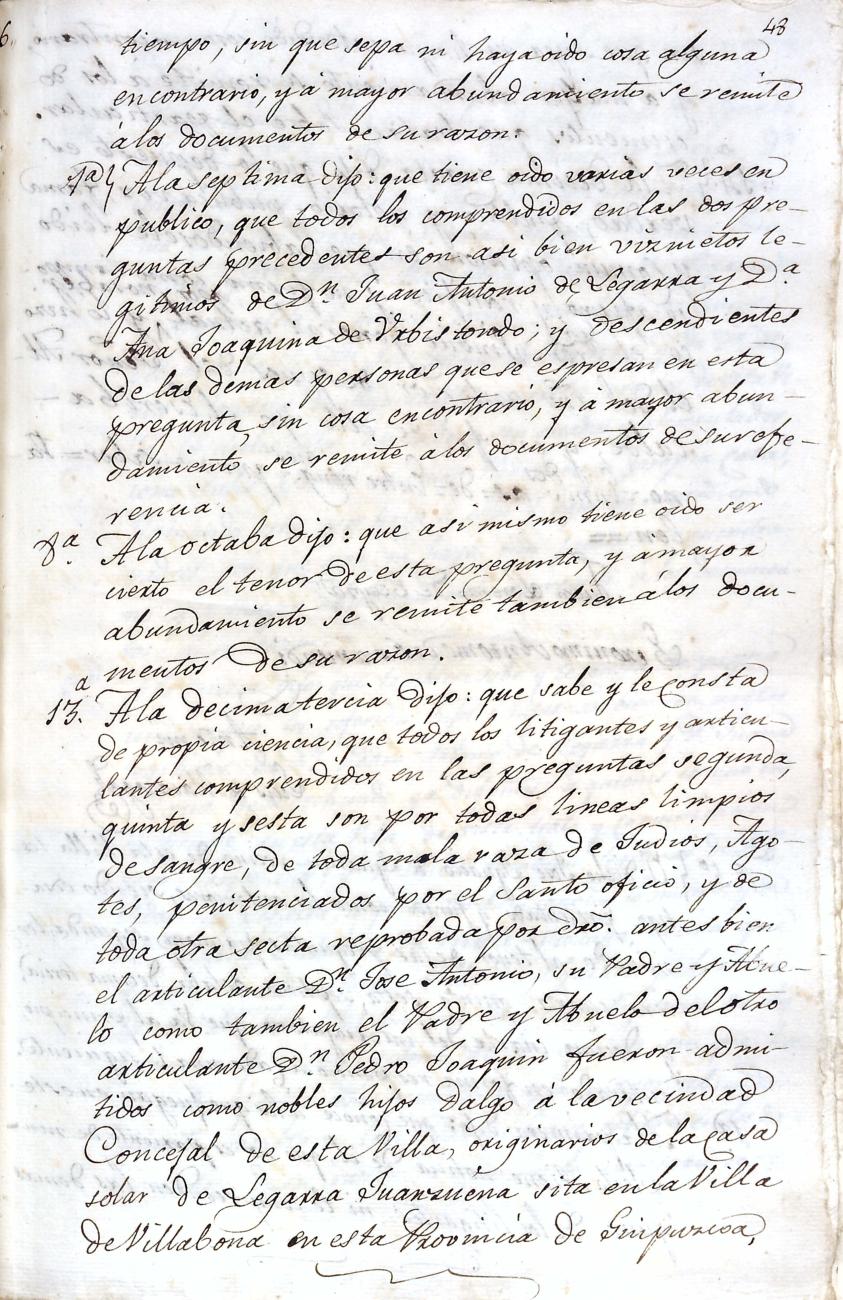 48
tiempo, sin que sepa ni haya oido cosa alguna
en contrario, y á mayor abundamiento se remite
á los documentos de su razon.
7ª A la septima dijo: que tiene oido varias veces en
publico, que todos los comprendidos en las dos pre-
guntas precedentes son asi bien viznietos le-
gitimos de Dn. Juan Antonio de Legarra y D.ª
Ana Joaquina de Urbistondo; y descendientes
de las demas personas que se espresan en esta
pregunta, sin cosa en contrario, y á mayor abun-
damiento se remite á los documentos de su refe-
rencia.
8ª. A la octaba dijo: que asi mismo tiene oido ser
cierto el tenor de esta pregunta, y á mayor
abundamiento se remite tambien á los docu-
mentos de su razon.
13.ª A la decimatercia dijo: que sabe y le consta
de propia ciencia, que todos los litigantes y articu-
lantes comprendidos en las preguntas segunda,
quinta y sesta son por todas lineas limpios
de sangre, de toda mala raza de Judios, Ago-
tes, penitenciados por el Santo oficio, y de
toda otra secta reprobada por dro. antes bien
el articulante Dn. Jose Antonio, su Padre y Abue-
lo como tambien el Padre y Abuelo del otro
articulante Dn. Pedro Joaquin fueron admi-
tidos como nobles hijos dalgo á la vecindad
Concejal de esta Villa, originarios de la casa
solar de Legarra Juanzuena sita en la Villa
de Villabona en esta Provincia de Guipuzcoa,